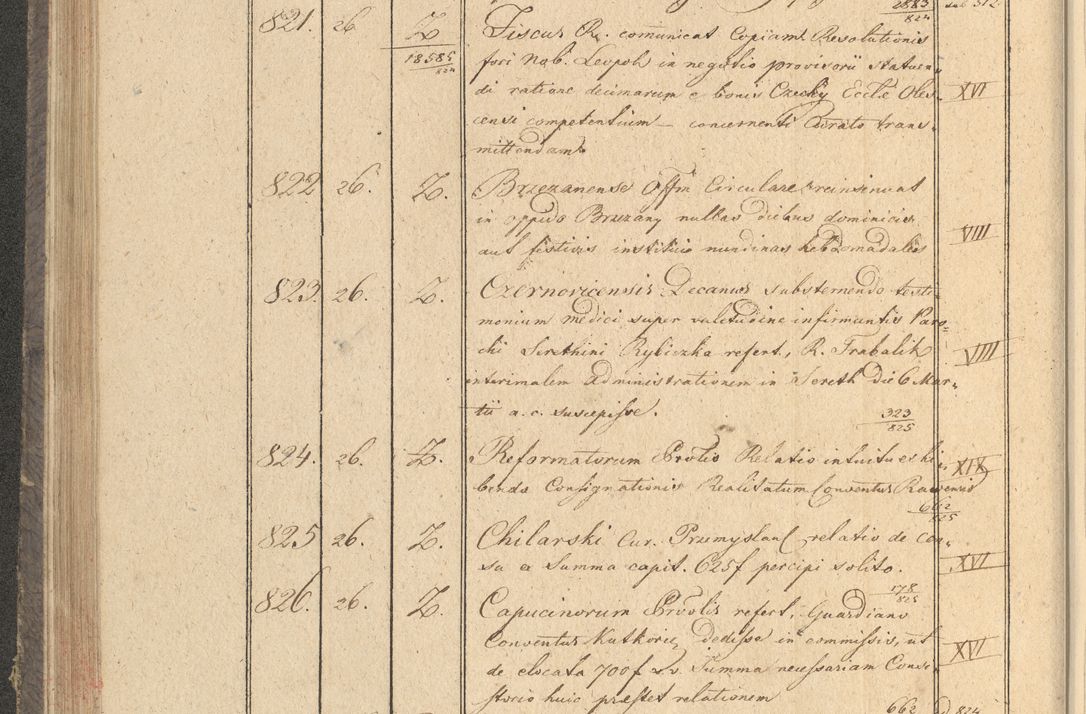 2883 sub 512
824
821. 26. Z. Fiscus R. comunicat Copiam Resolutionis
18585
824
fori Nob. Leopol: in negotio provisorii statuen„
di ratione decimarum e bonis Czechy Eccle Oles„ XVI
censi competentium – concernenti Curato trans„
mittendam.
822. 26. Z. Brzezanense Offm Circulare reinsinuat
in oppido Brzezany nullas diebus dominicis
aut festivis institui nundinas hebdomadales VIII
823. 26. Z. Czernovicensis Decanus substernendo testi„
monium Medici super valetudine infirmantis Paro„
chi Serethini Rybiczka refert, R. Trabalik VIII
interimalem administrationem in Sereth die 6 Mar„
tii a. c. suscepisse. 323
825
824. 26. Z. Reformatorum Provlis Relatio intuitu exhi„ XIX
benda Consignationis Realitatum Conventus Rawensis
662
825
825 26. Z. Chilarski Cur. Przemyslan relatio de Cen„
su a Summa capit. 625f percipi solito. XVI
178
825
826. 26. Z. Capucinorum Provlis refert, Guardiano
Conventus Kutkorz, dedisse in commissis, ut
de elocata 700f Summa necessariam Consi„ XVI
storio huic præstet relationem
662 824